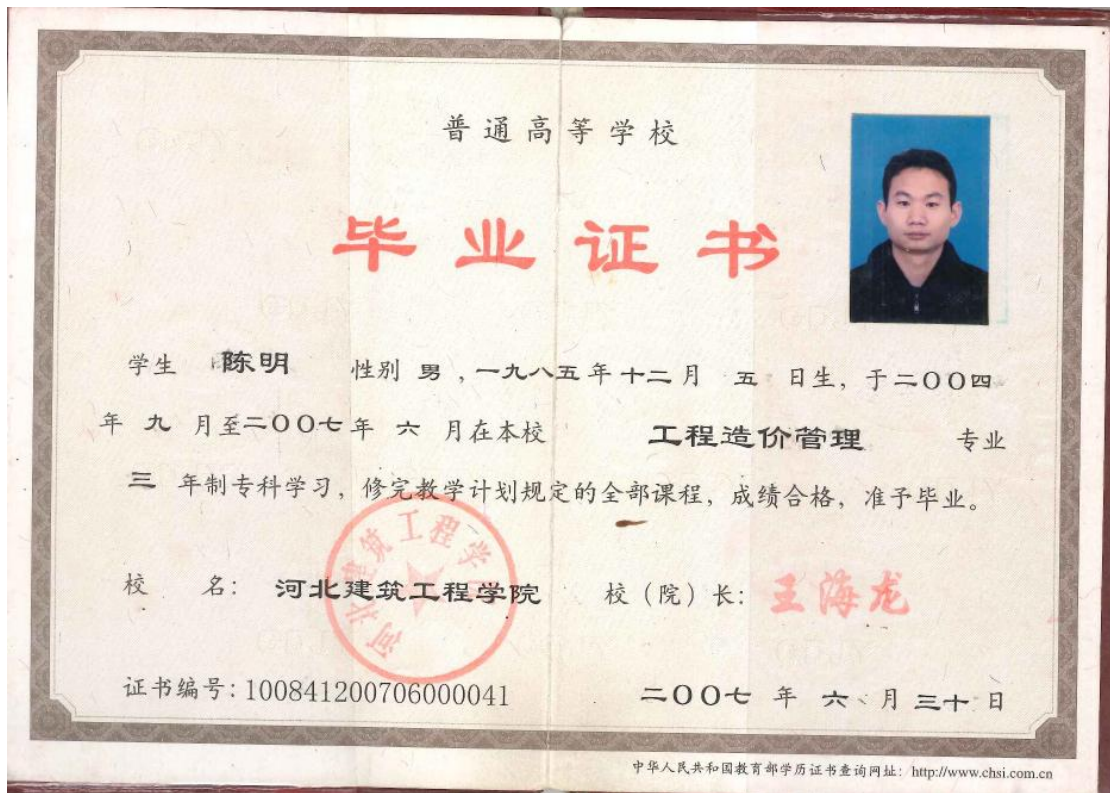 普通高等学校
毕业证书
学生 陈明 性别 男，一九八五年十二月 五 日生，于二〇〇四
年 九 月至二〇〇七年 六 月在本校 工程造价管理 专业
三 年制专科学习，修完教学计划规定的全部课程，成绩合格，准予毕业。
河北建筑工程学院
校 名：河北建筑工程学院 校（院）长：王海龙
证书编号：100841200706000041 二〇〇七 年 六 月 三十 日
中华人民共和国教育部学历证书查询网址：http://www.chsi.com.cn